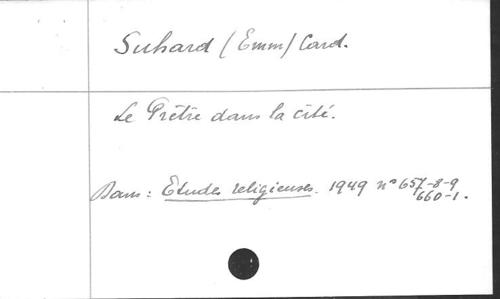 Suhard (Emm) Card.
Le Prêtre dans la cité.
Dans : Etudes religieuses. 1949 n° 657-8-9
660-1.